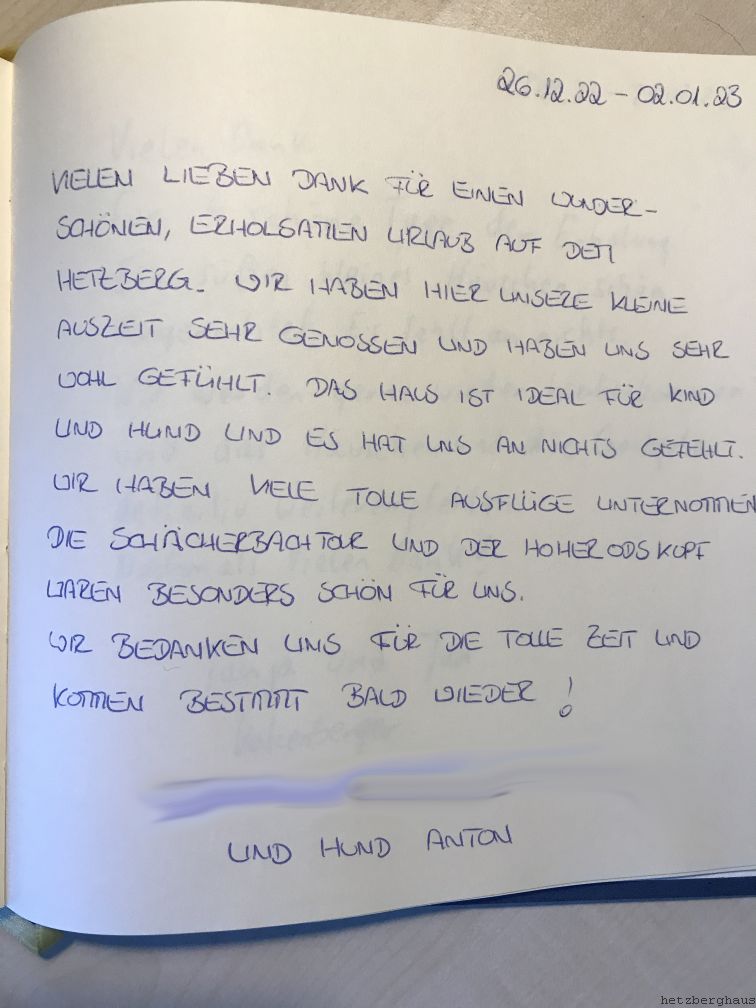 26.12.22 - 02.01.23
VIELEN LIEBEN DANK FÜR EINEN WUNDER-
SCHÖNEN, ERHOLSAMEN URLAUB AUF DEM
HETZBERG. WIR HABEN HIER UNSERE KLEINE
AUSZEIT SEHR GENOSSEN UND HABEN UNS SEHR
WOHL GEFÜHLT. DAS HAUS IST IDEAL FÜR KIND
UND HUND UND ES HAT UNS AN NICHTS GEFEHLT.
WIR HABEN VIELE TOLLE AUSFLÜGE UNTERNOMMEN
DIE SCHÄCHERBACHTOUR UND DER HOHERODSKOPF
WAREN BESONDERS SCHÖN FÜR UNS.
WIR BEDANKEN UNS FÜR DIE TOLLE ZEIT UND
KOMMEN BESTIMMT BALD WIEDER!
UND HUND ANTON
hetzberghaus